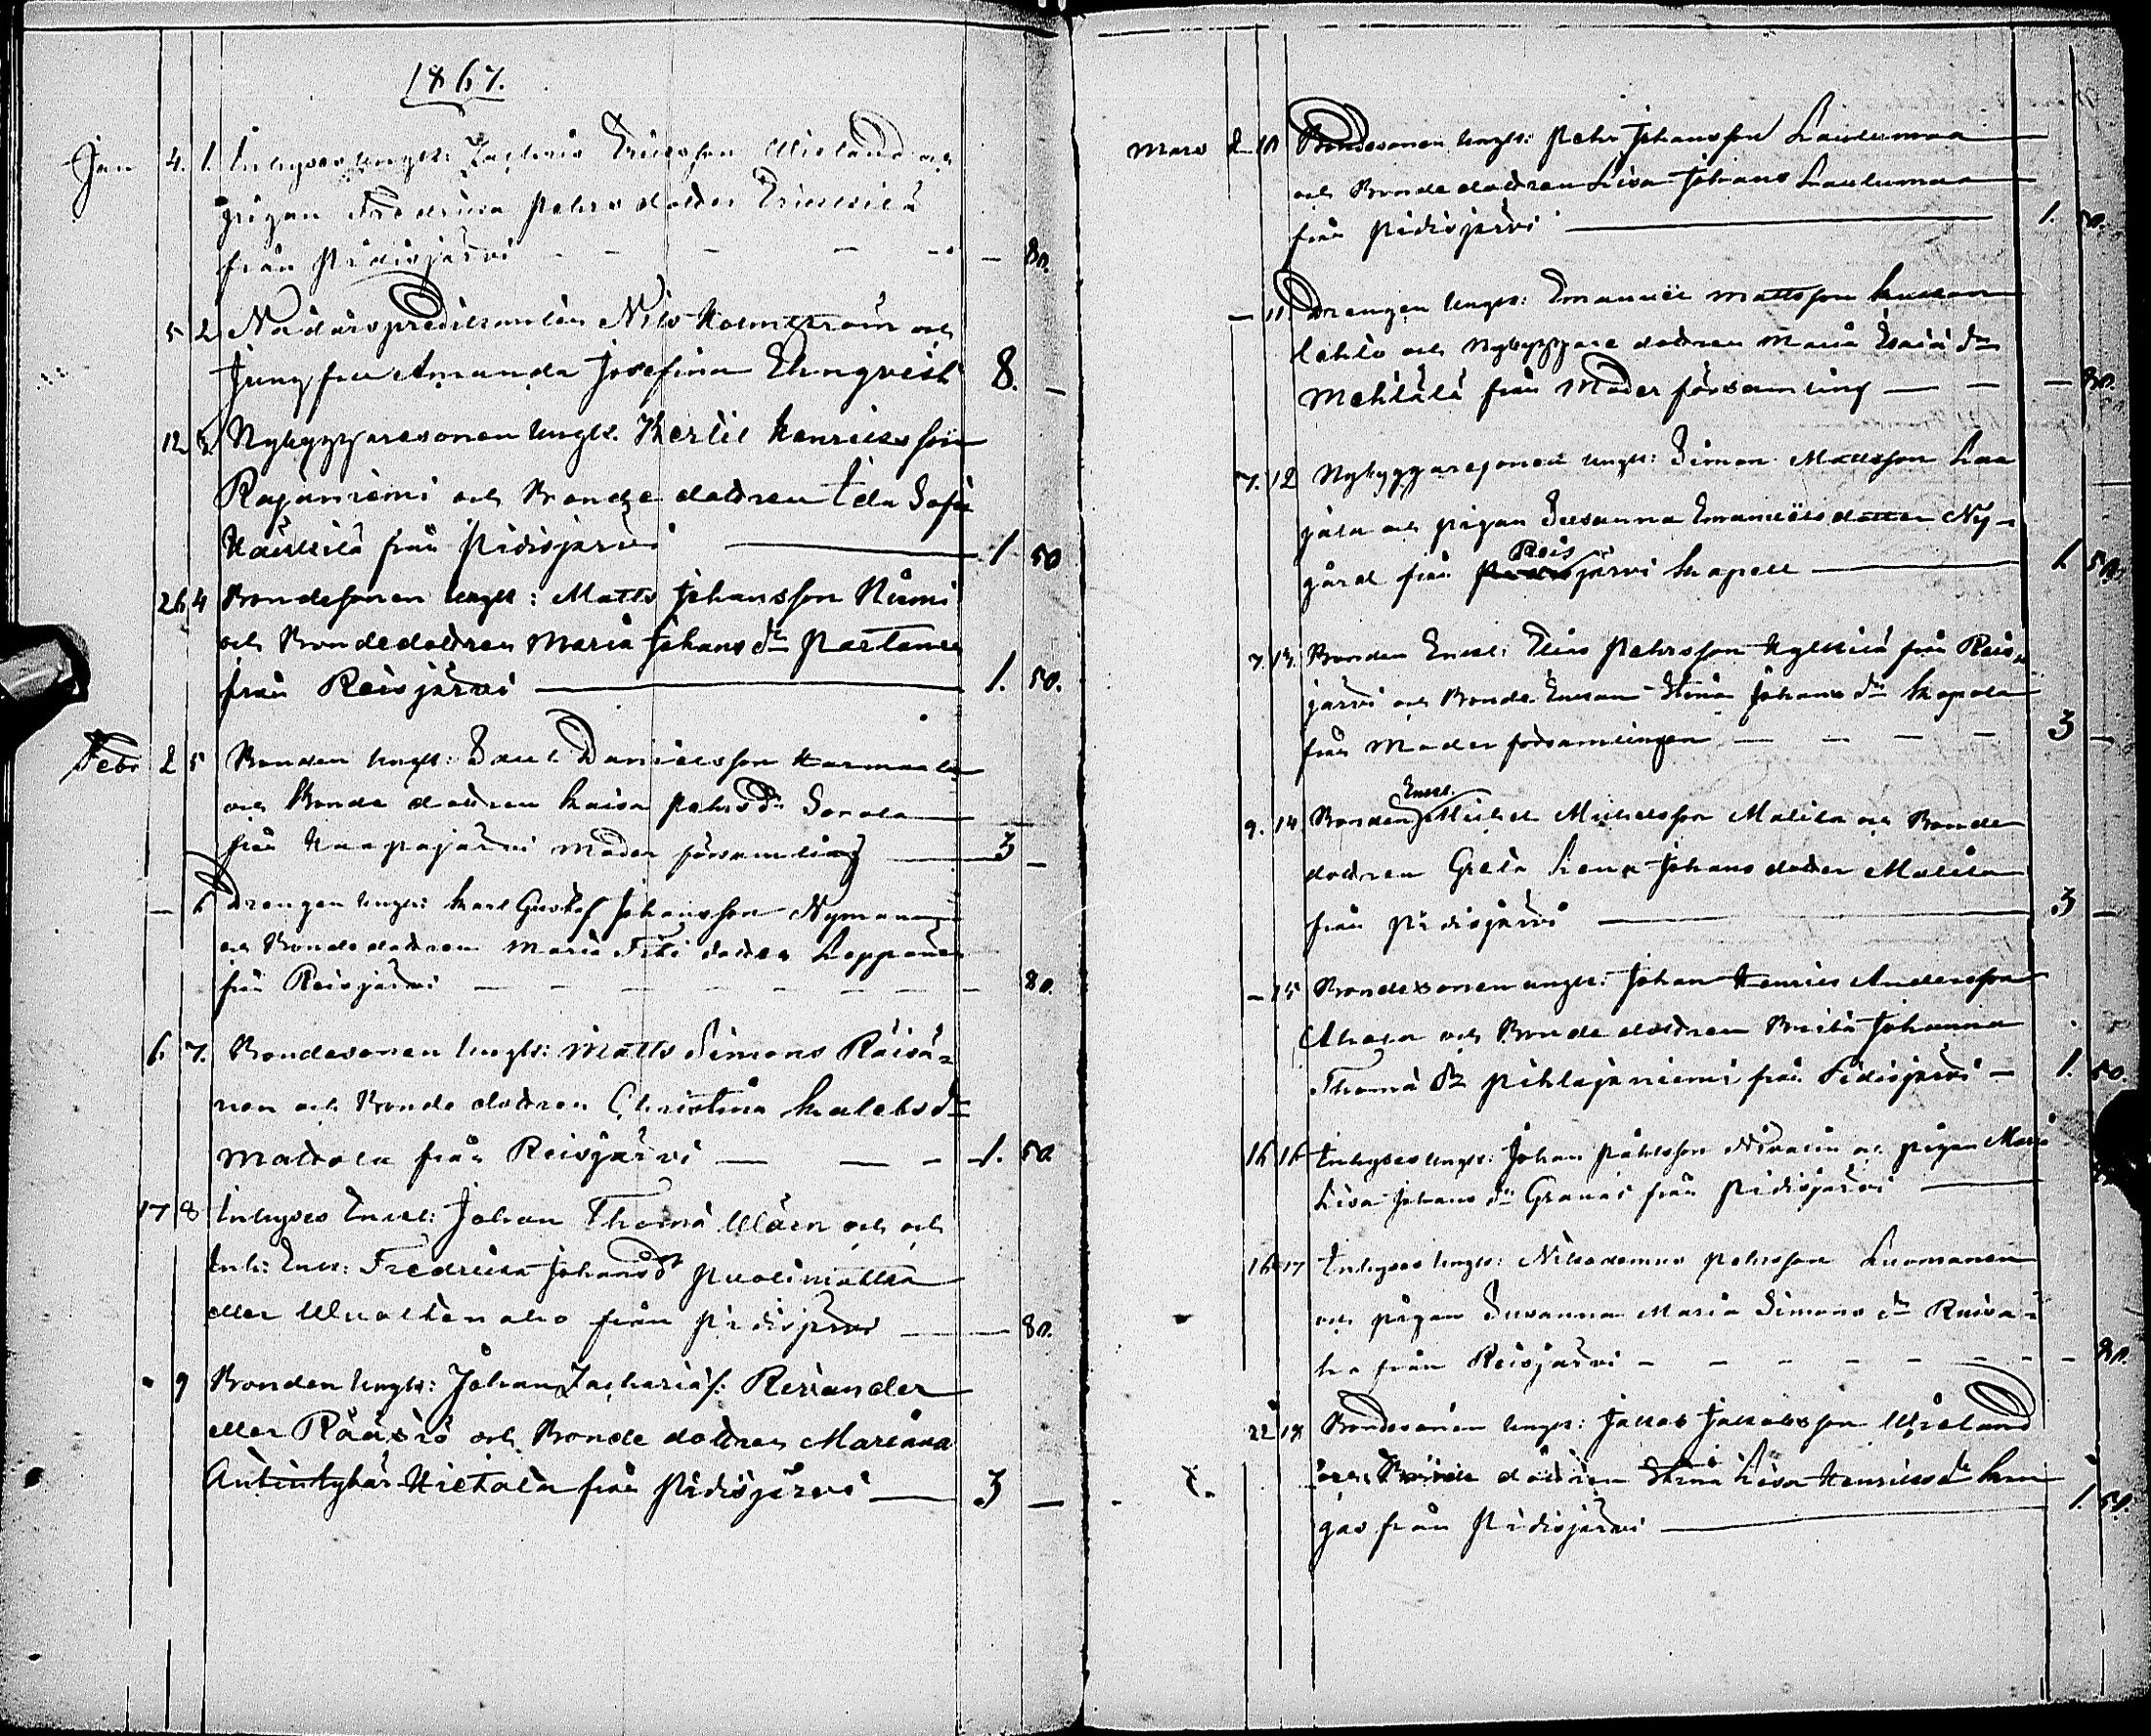 1867.
Jan 4. 1. Inhyses ungk: Zacharis Ericsson Wieland och
pigan Fredrica Pehrs dotter Erickilä
från Pidisjärvi - - - - 80.
5 2 Nådårspredikanten Nils Holmström och
Jungfru Amanda Josefina Ehnqvist 8. -
12 3. Nybyggaresonen ungk. Kertil Henriksson
Rajaniemi och Bonde dottren Ida Sofia
Häikilä från Pidisjärvi 1 50
26 4 Bondesonen ungk: Matts Johansson Niemi
och Bondedottren Maria Johans dr Partanen
från Reisjärvi 1. 50.
Febr 2 5 Bonden ungk: Saul Danielsson Harmaala
och Bonde dottren Kaisa Pehrs dr Sorola
från Haapajärvi Moder församling 3 -
- 6 Drengen ungk: Karl Gustaf Johansson Nyman
och Bonde dottren Maria Fili dotter Leppänen
från Reisjärvi - - - - - - - 80.
6 7. Bondesonen ungk: Matts Simons Räisä=
nen och Bonde dottren Christina Kalebs dr
Mattola från Reisjärvi - - - 1. 50.
17 8 Inhyses Enkl: Johan Thomä och och
Inh: Enk: Fredrika Johans dr Puolimatka
eller från Pidisjärvi 80.
" 9 Bonden ungk: Johan Zachariä s: Relander
eller Rääsiö och Bonde dottren Mariana
Antintyhär Hietala från Pidisjärvi 3 -
Mars 2 10 Bondesonen ungk: Pehr Johansson Laulumaa
och Bonde dottren Lisa Johans Laulumaa
från Pidisjärvi 1. 50.
- 11 Drengen ungk: Emanuel Mattsson
lehto och Nybyggare dottren Maria Esaiä dr
Mehtälä från Moder församling - - - 80.
7. 12 Nybyggaresonen ungk: Simon Mattsson Laa
jala och pigan Susanna Emanuels dotter Ny-
gård från Reisjärvi Kapell 1. 50.
7. 13. Bonden Enkl: Elias Pehrsson Kylkilä från Reis=
järvi och Bonde Enkan Stina Johans dr Kopola
från Moder församlingen - - - - 3 -
9. 14 Bonden Enkl. Michel Michelsson Malila och Bonde
dottren Greta Lena Johans dotter Malila
från Pidisjärvi 3 -
- 15 Bondesonen ungk: Johan Henric Andersson
Ahola och Bonde dottren Brita Johanna
Thomä dr Pihlajaniemi från Pidisjärvi - 1. 50.
16 16 Inhyses ungk: Johan Påhlsson och pigan Maria
Lisa Johans dr från Pidisjärvi
16 17 Inhyses ungk: Nikodemus Pehrsson Luomanen
och pigan Susanna Maria Simons dr
från Reisjärvi - - - - - - - 80.
22 18 Bondesonen ungk: Jakob Jakobsson Wieland
och Bonde dottren Stina Lisa Henriks dr Kan
gas från Pidisjärvi 1. 50.